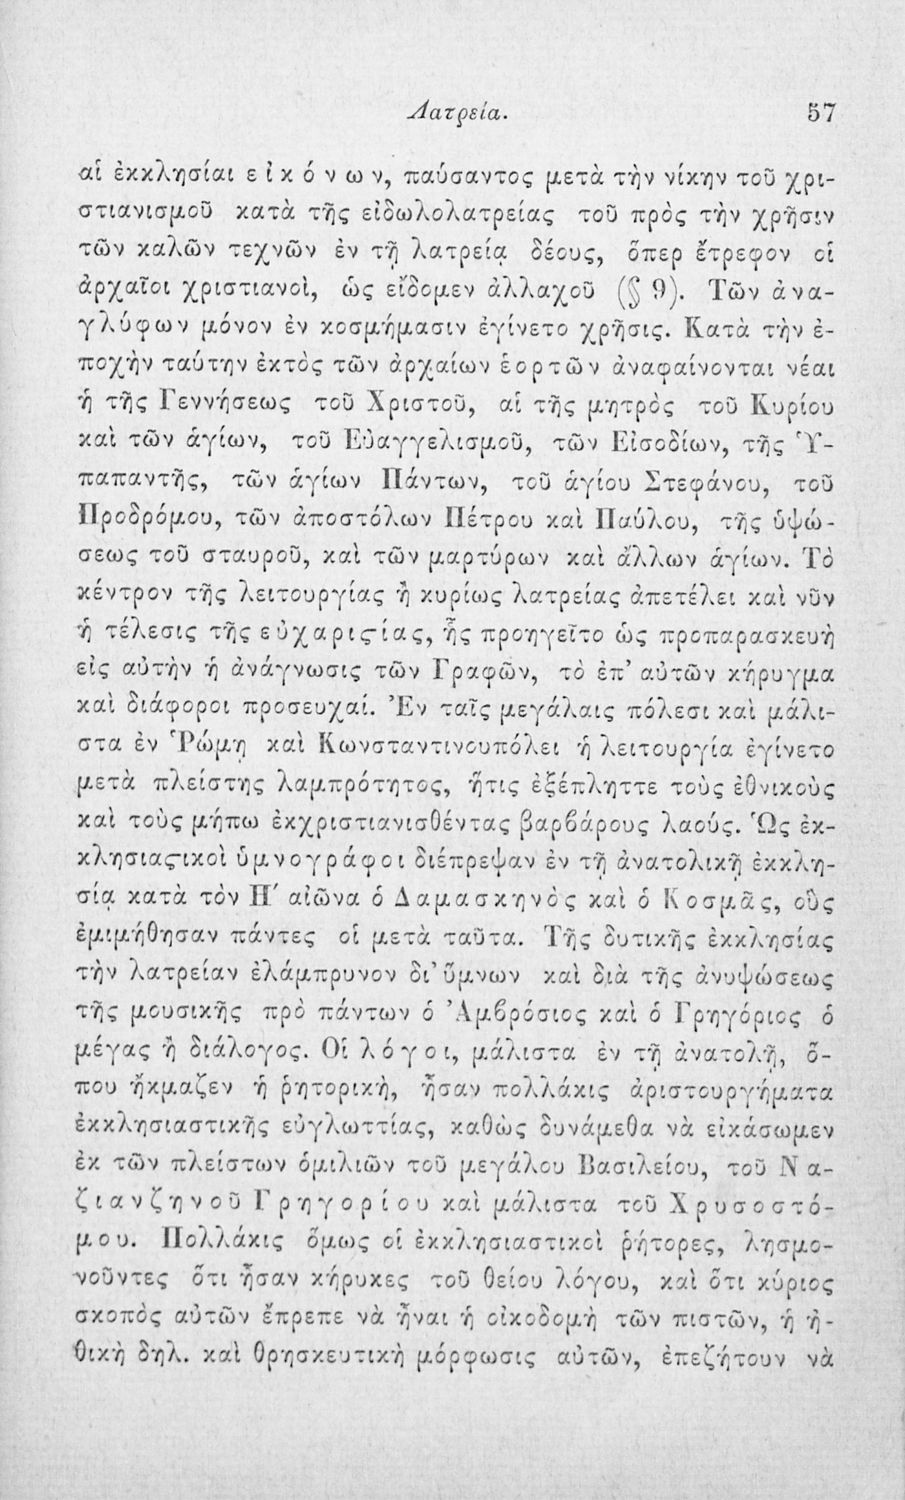 Λατρεία. 57
αἱ ἐκκλησίαι εἰκόνων, παύσαντος μετὰ τὴν νίκην τοῦ χρι-
στιανισμοῦ κατὰ τῆς εἰδωλολατρείας τοῦ πρὸς τὴν χρῆσιν
τῶν καλῶν τεχνῶν ἐν τῇ λατρείᾳ δέους, ὅπερ ἔτρεφον οἱ
ἀρχαῖοι χριστιανοὶ, ὡς εἴδομεν ἀλλαχοῦ (§ 9). Τῶν ἀνα-
γλύφων μόνον ἐν κοσμήμασιν ἐγίνετο χρῆσις. Κατὰ τὴν ἐ-
ποχὴν ταύτην ἐκτὸς τῶν ἀρχαίων ἑορτῶν ἀναφαίνονται νέαι
ἡ τῆς Γεννήσεως τοῦ Χριστοῦ, αἱ τῆς μητρὸς τοῦ Κυρίου
καὶ τῶν ἁγίων, τοῦ Εὐαγγελισμοῦ, τῶν Εἰσοδίων, τῆς Ὑ-
παπαντῆς, τῶν ἁγίων Πάντων, τοῦ ἁγίου Στεφάνου, τοῦ
Προδρόμου, τῶν ἀποστόλων Πέτρου καὶ Παύλου, τῆς ὑψώ-
σεως τοῦ σταυροῦ, καὶ τῶν μαρτύρων καὶ ἄλλων ἁγίων. Τὸ
κέντρον τῆς λειτουργίας ἢ κυρίως λατρείας ἀπετέλει καὶ νῦν
ἡ τέλεσις τῆς εὐχαριϛίας, ἧς προηγεῖτο ὡς προπαρασκευὴ
εἰς αὐτὴν ἡ ἀνάγνωσις τῶν Γραφῶν, τὸ ἐπ' αὐτῶν κήρυγμα
καὶ διάφοροι προσευχαί. Ἐν ταῖς μεγάλαις πόλεσι καὶ μάλι-
στα ἐν Ῥώμῃ καὶ Κωνσταντινουπόλει ἡ λειτουργία ἐγίνετο
μετὰ πλείστης λαμπρότητος, ἥτις ἐξέπληττε τοὺς ἐθνικοὺς
καὶ τοὺς μήπω ἐκχριστιανισθέντας βαρβάρους λαούς. Ὡς ἐκ-
κλησιαϛικοὶ ὑμνογράφοι διέπρεψαν ἐν τῇ ἀνατολικῇ ἐκκλη-
σίᾳ κατὰ τὸν Η' αἰῶνα ὁ Δαμασκηνὸς καὶ ὁ Κοσμᾶς, οὓς
ἐμιμήθησαν πάντες οἱ μετὰ ταῦτα. Τῆς δυτικῆς ἐκκλησίας
τὴν λατρείαν ἐλάμπρυνον δι' ὕμνων καὶ διὰ τῆς ἀνυψώσεως
τῆς μουσικῆς πρὸ πάντων ὁ Ἀμβρόσιος καὶ ὁ Γρηγόριος ὁ
μέγας ἢ διάλογος. Οἱ λόγοι, μάλιστα ἐν τῇ ἀνατολῇ, ὅ-
που ἤκμαζεν ἡ ῥητορικὴ, ἦσαν πολλάκις ἀριστουργήματα
ἐκκλησιαστικῆς εὐγλωττίας, καθὼς δυνάμεθα νὰ εἰκάσωμεν
ἐκ τῶν πλείστων ὁμιλιῶν τοῦ μεγάλου Βασιλείου, τοῦ Να-
ζιανζηνοῦ Γρηγορίου καὶ μάλιστα τοῦ Χρυσοστό-
μου. Πολλάκις ὅμως οἱ ἐκκλησιαστικοὶ ῥήτορες, λησμο-
νοῦντες ὅτι ἦσαν κήρυκες τοῦ θείου λόγου, καὶ ὅτι κύριος
σκοπὸς αὐτῶν ἔπρεπε νὰ ἦναι ἡ οἰκοδομὴ τῶν πιστῶν, ἡ ἠ-
θικὴ δηλ. καὶ θρησκευτικὴ μόρφωσις αὐτῶν, ἐπεζήτουν νὰ